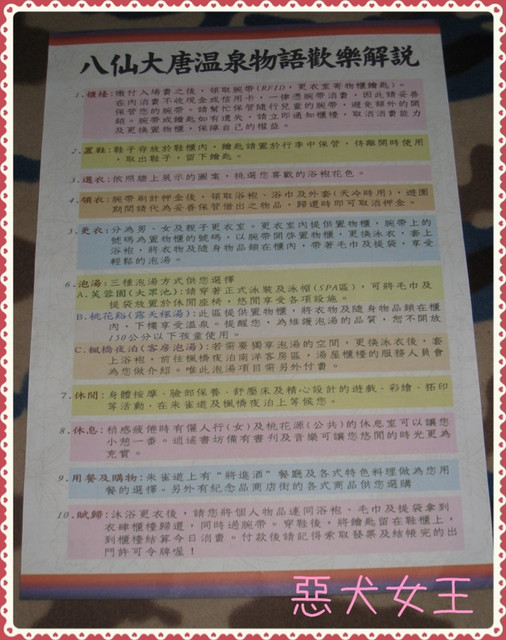 八仙大唐溫泉物語歡樂解說
1.櫃檯:繳付入場費之後,領取腕帶(RFID,更衣室寄物櫃鑰匙)。
在內消費不收現金或信用卡,一律憑腕帶消費,因此請妥善
保管您的腕帶。請幫忙保管隨行兒童的腕帶,避免額外的開
銷。腕帶或鑰匙如有遺失,請立即通知櫃檯,取消消費能力
及更換置物櫃,保障自己的權益。
2.置鞋:鞋子存放於鞋櫃內,鑰匙請置於行李中保管,待離開時使用
,取出鞋子,留下鑰匙。
3.選衣:依照牆上展示的圖案,挑選您喜歡的浴袍花色。
4.領衣:腕帶刷計押金後,領取浴袍、浴巾及外套(天冷時用),遊園
期間請代為妥善保管借出之物品,歸還時即可取消押金。
5.更衣:分為男、女及親子更衣室,更衣室內提供置物櫃,腕帶上的
號碼為置物櫃的號碼,以腕帶開啟置物櫃,更換泳衣,套上
浴袍,將衣物及隨身物品鎖在櫃內,帶著毛巾及提袋,享受
輕鬆的泡湯。
6.泡湯:三種泡湯方式供您選擇
A.芙蓉園(大眾池):請穿著正式泳裝及泳帽(SPA區),可將毛巾及
提袋放置於休閒座椅,悠閒享受各項設施。
B.桃花谿(露天裸湯):此區提供置物櫃,將衣物及隨身物品鎖在櫃
內,下樓享受溫泉。提醒您,為維護泡湯的品質,恕不開放
130公分以下孩童使用。
C.楓橋夜泊(客房泡湯):若需要獨享泡湯的空間,更換泳衣後,套
上浴袍,前往楓橋夜泊南洋客房區,湯屋櫃檯的服務人員會
為您做介紹。唯此泡湯項目需另外付費。
7.休閒:身體按摩、臉部保養、舒壓床及精心設計的遊戲、彩繪、拓印
等活動,在朱雀道及楓橋夜泊上等候您。
8.休息:稍感疲倦時有儷人行(女)及桃花源(公共)的休息室可以讓您
小憩一番。逍遙書坊備有書刊及音樂可讓您悠閒的時光更為
充實。
9.用餐及購物:朱雀道上有“將進酒”餐廳及各式特色料理做為您用
餐的選擇。另外有紀念品商店街的各式商品供您選購
10.賦歸:沐浴更衣後,請您將個人物品連同浴袍、毛巾及提袋拿到
衣肆櫃檯歸還,同時過腕帶。穿鞋後,將鑰匙留在鞋櫃上,
到櫃檯結算今日消費。付款後請記得索取發票及結帳完的出
門許可令牌喔!
惡犬女王